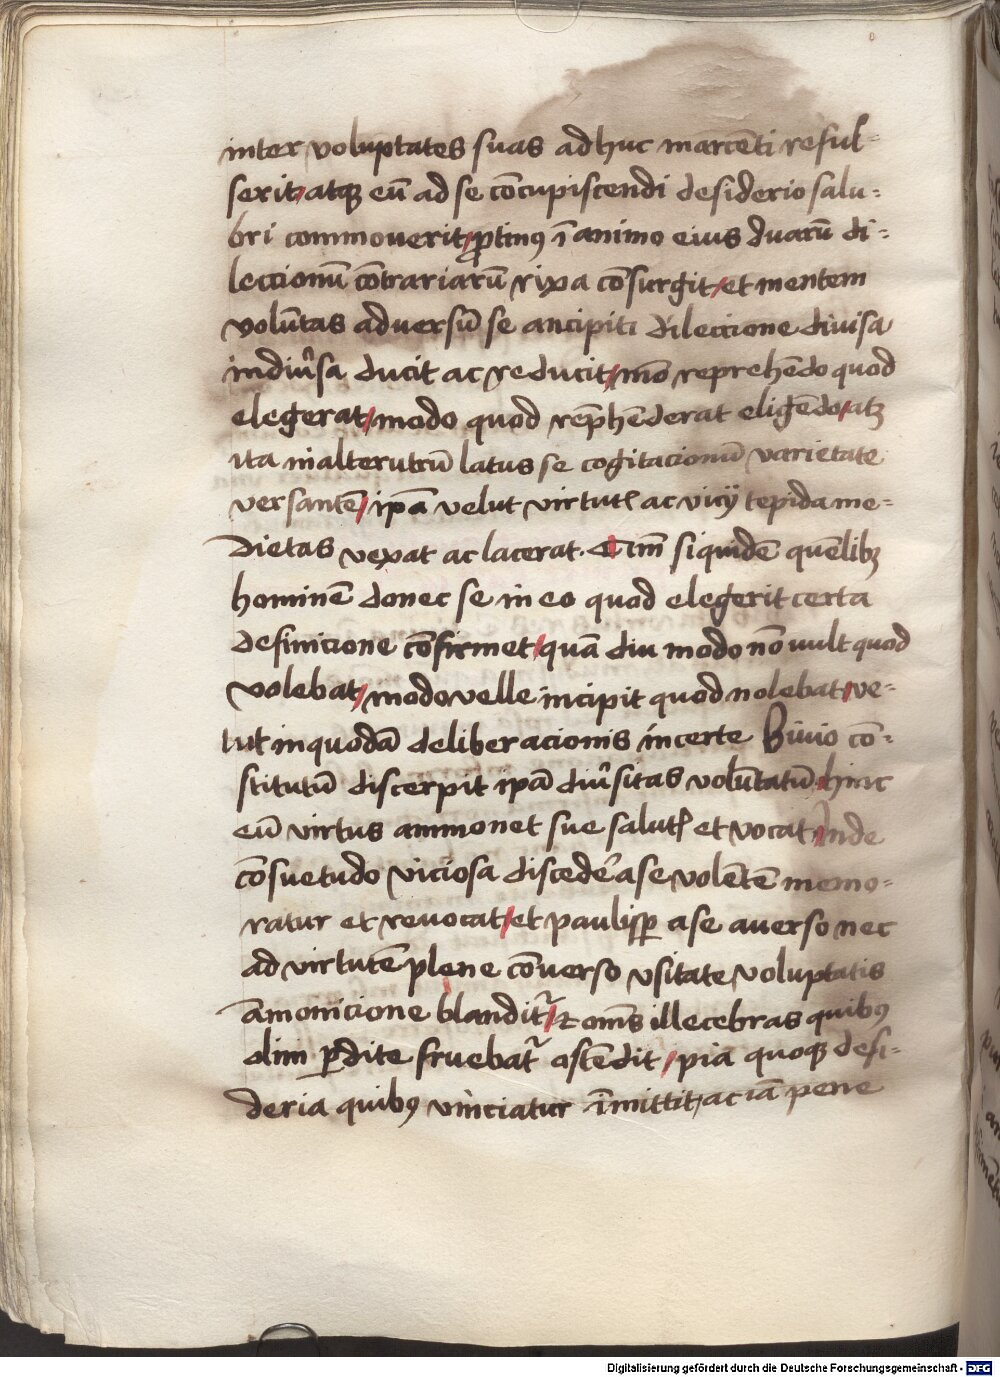 inter voluptates suas adhuc marcenti reful-
serit / atq; eū ad se cōcupiscendi desiderio salu-
bri commoverit / ꝓtinꝰ ī animo eius duarū di-
leccionū cōtrariarū rixa cōsurgit / et mentem
volūtas adversū se ancipiti dileccione divisa
indiūsa ducit ac reducit / mō reprehēdo quod
elegerat / modo quod rep̄hēderat eligēdo / atꝫ
ita in alterutrū latus se cogitacionū varietate
versantē / ip̄ā velut virtutꝭ ac vicij tepida me-
dietas vexat ac lacerat. Cūm siquidē quēlibꝫ
hominē donec se in eo quod elegerit certa
definicione cōfirmet / quā diu modo nō uult quod
volebat / modo velle incipit quod nolebat / ve-
lut in quodā deliberacionis incerte Bivio cō-
stitutū discerpit ip̄ā diūsitas volūtatū / hinc
eū virtus ammonet sue salutꝭ et vocat / Inde
cōsuetudo viciosa discedēa se volētē memo-
ratur et revocat / et paulisꝑ a se averso nec
ad virtutē plene cōverso usitate voluptatis
āmonicione blandit᷑ / ⁊ om̄s illecebras quibꝰ
olim ꝑdite fruebat᷑ ostēdit / pia quoqꝫ desi-
deria quibꝰ vinciatur īmittit / ac iā pene
Digitalisierung gefördert durch die Deutsche Forschungsgemeinschaft - DFG